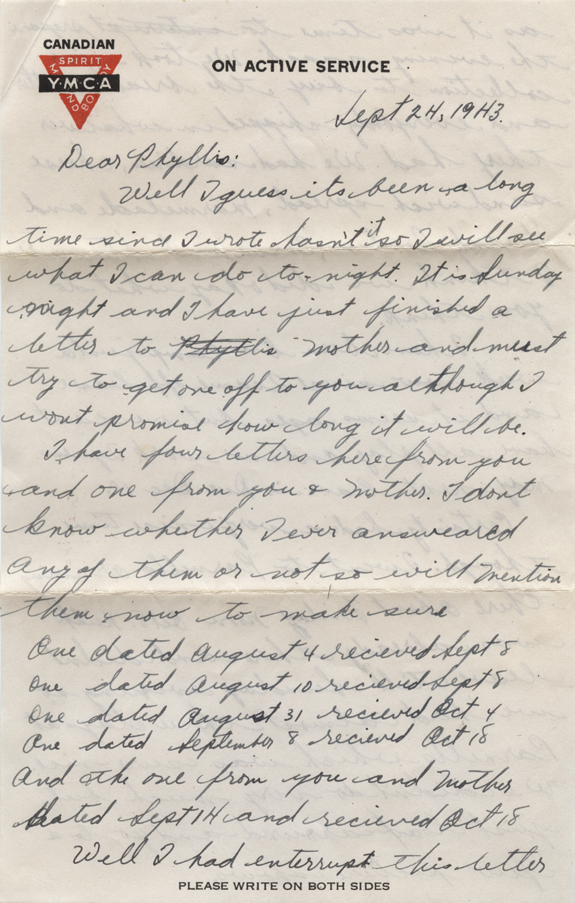 CANADIAN
SPIRIT
Y·M·C·A
MIND
BODY
ON ACTIVE SERVICE
Sept 24, 1943.
Dear Phyllis:
Well I guess its been a long
time since I wrote hasn't it so I will see
what I can do to-night. It is Sunday
night and I have just finished a
letter to Phyllis Mother and must
try to get one off to you although I
wont promise how long it will be.
I have four letters here from you
and one from you & Mother. I dont
know whether I ever answeared
any of them or not so will mention
them now to make sure
One dated August 4 recieved Sept 8
one dated August 10 recieved Sept 8
one dated August 31 recieved Oct 4
One dated September 8 recieved Oct 18
And the one from you and Mother
dated Sept 14 and recieved Oct 18
Well I had enterrupt this letter
PLEASE WRITE ON BOTH SIDES